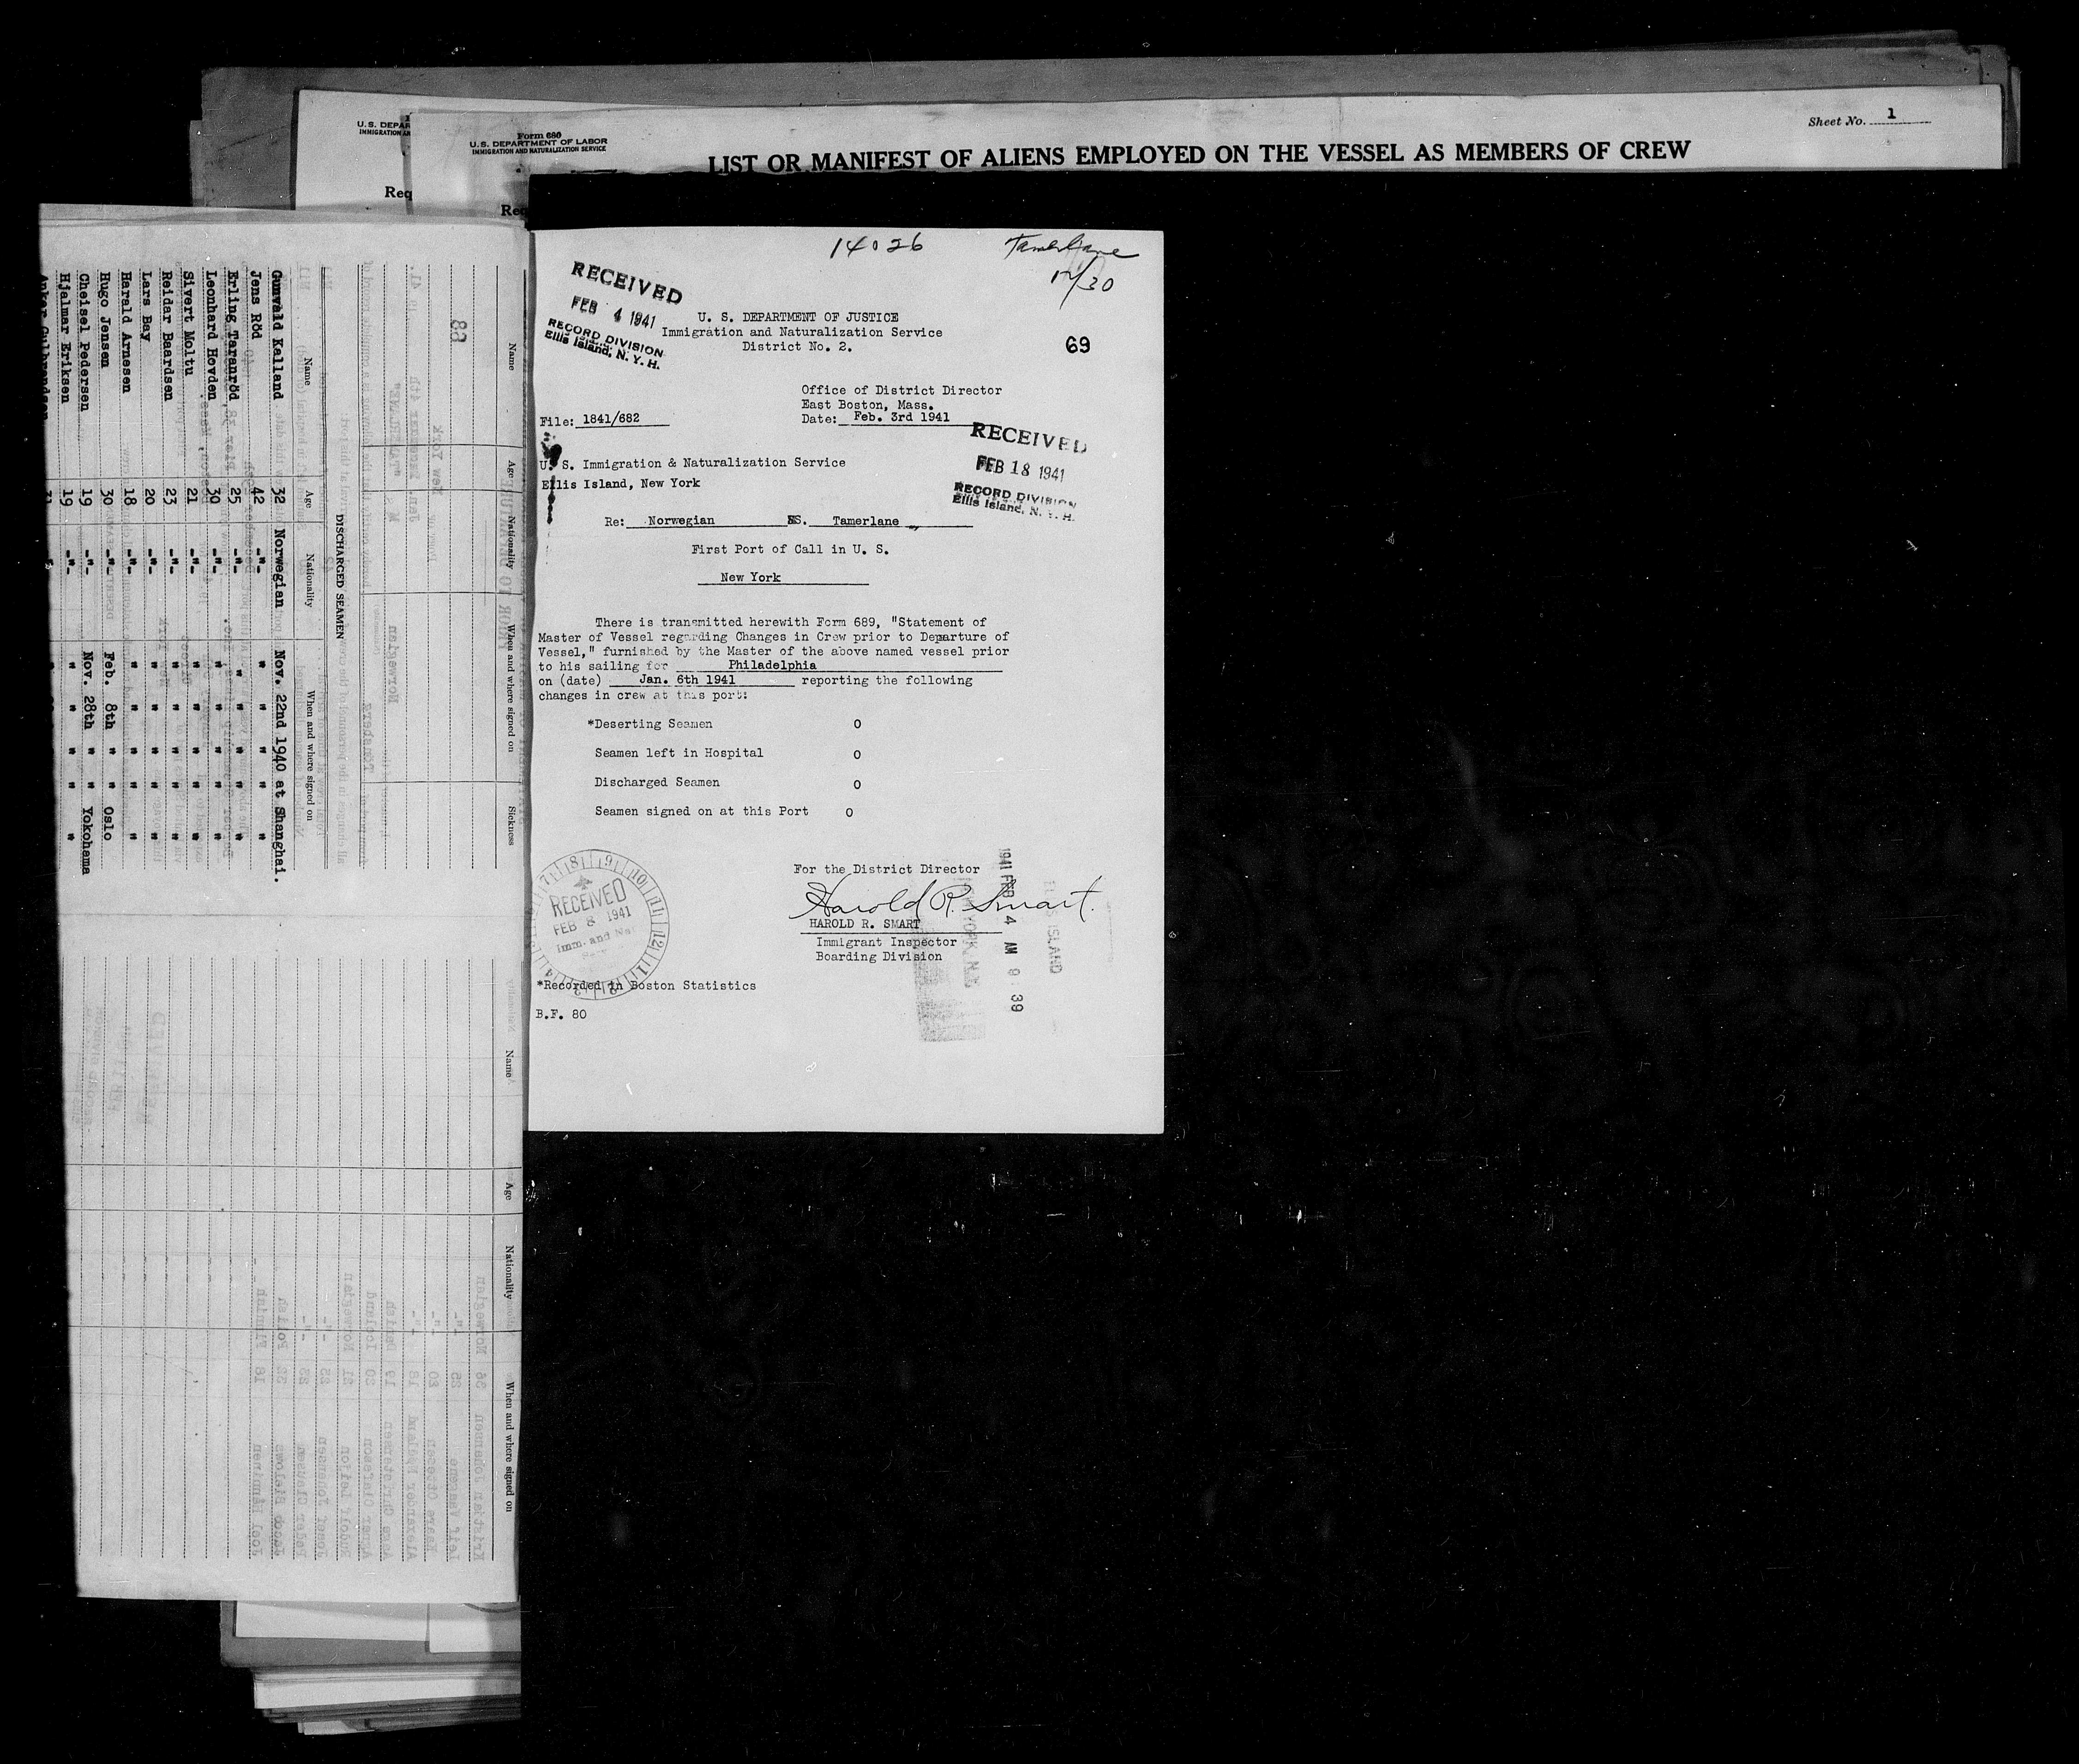 U. S. DEPAR
IMMIGRATION AN
Req
Form 680
U. S. DEPARTMENT OF LABOR
IMMIGRATION AND NATURALIZATION SERVICE
Req
LIST OR MANIFEST OF ALIENS EMPLOYED ON THE VESSEL AS MEMBERS OF CREW
Sheet No. 1
14026
Tamerlane
12/30
RECEIVED
FEB 4 1941
RECORD DIVISION
Ellis Island, N. Y. H.
U. S. DEPARTMENT OF JUSTICE
Immigration and Naturalization Service
District No. 2.
69
Office of District Director
East Boston, Mass.
Date: Feb. 3rd 1941
File: 1841/682
RECEIVED
FEB 18 1941
RECORD DIVISION
Ellis Island, N. Y. H.
U. S. Immigration & Naturalization Service
Ellis Island, New York
Re: Norwegian SS. Tamerlane
First Port of Call in U. S.
New York
There is transmitted herewith Form 689, "Statement of
Master of Vessel regarding Changes in Crew prior to Departure of
Vessel," furnished by the Master of the above named vessel prior
to his sailing for Philadelphia
on (date) Jan. 6th 1941 reporting the following
changes in crew at this port:
*Deserting Seamen 0
Seamen left in Hospital 0
Discharged Seamen 0
Seamen signed on at this Port 0
For the District Director
Harold R. Smart.
HAROLD R. SMART
Immigrant Inspector
Boarding Division
RECEIVED
FEB 8 1941
Imm. and Nat
*Recorded in Boston Statistics
B.F. 80
1941 FEB 4 AM 9 39
ELLIS ISLAND
NEW YORK
Name Age Nationality When and where signed on Sickness
88
DISCHARGED SEAMEN
Name Age Nationality When and where signed on
Gunvald Kalland 32 Norwegian Nov. 22nd 1940 at Shanghai.
Jens Röd 42 -"- " " " "
Erling Taranröd 25 -"- " " " "
Leonhard Hovden 30 -"- " " " "
Sivert Moltu 21 -"- " " " "
Reidar Baardsen 23 -"- " " " "
Lars Bay 20 -"- " " " "
Harald Arnesen 18 -"- " " " "
Hugo Jensen 30 -"- Feb. 8th " " Oslo
Cheisel Pedersen 19 -"- Nov. 28th " " Yokohama
Hjalmar Eriksen 19 -"- " " " " "
Anker Gulbrandsen 31
Name Age Nationality When and where signed on